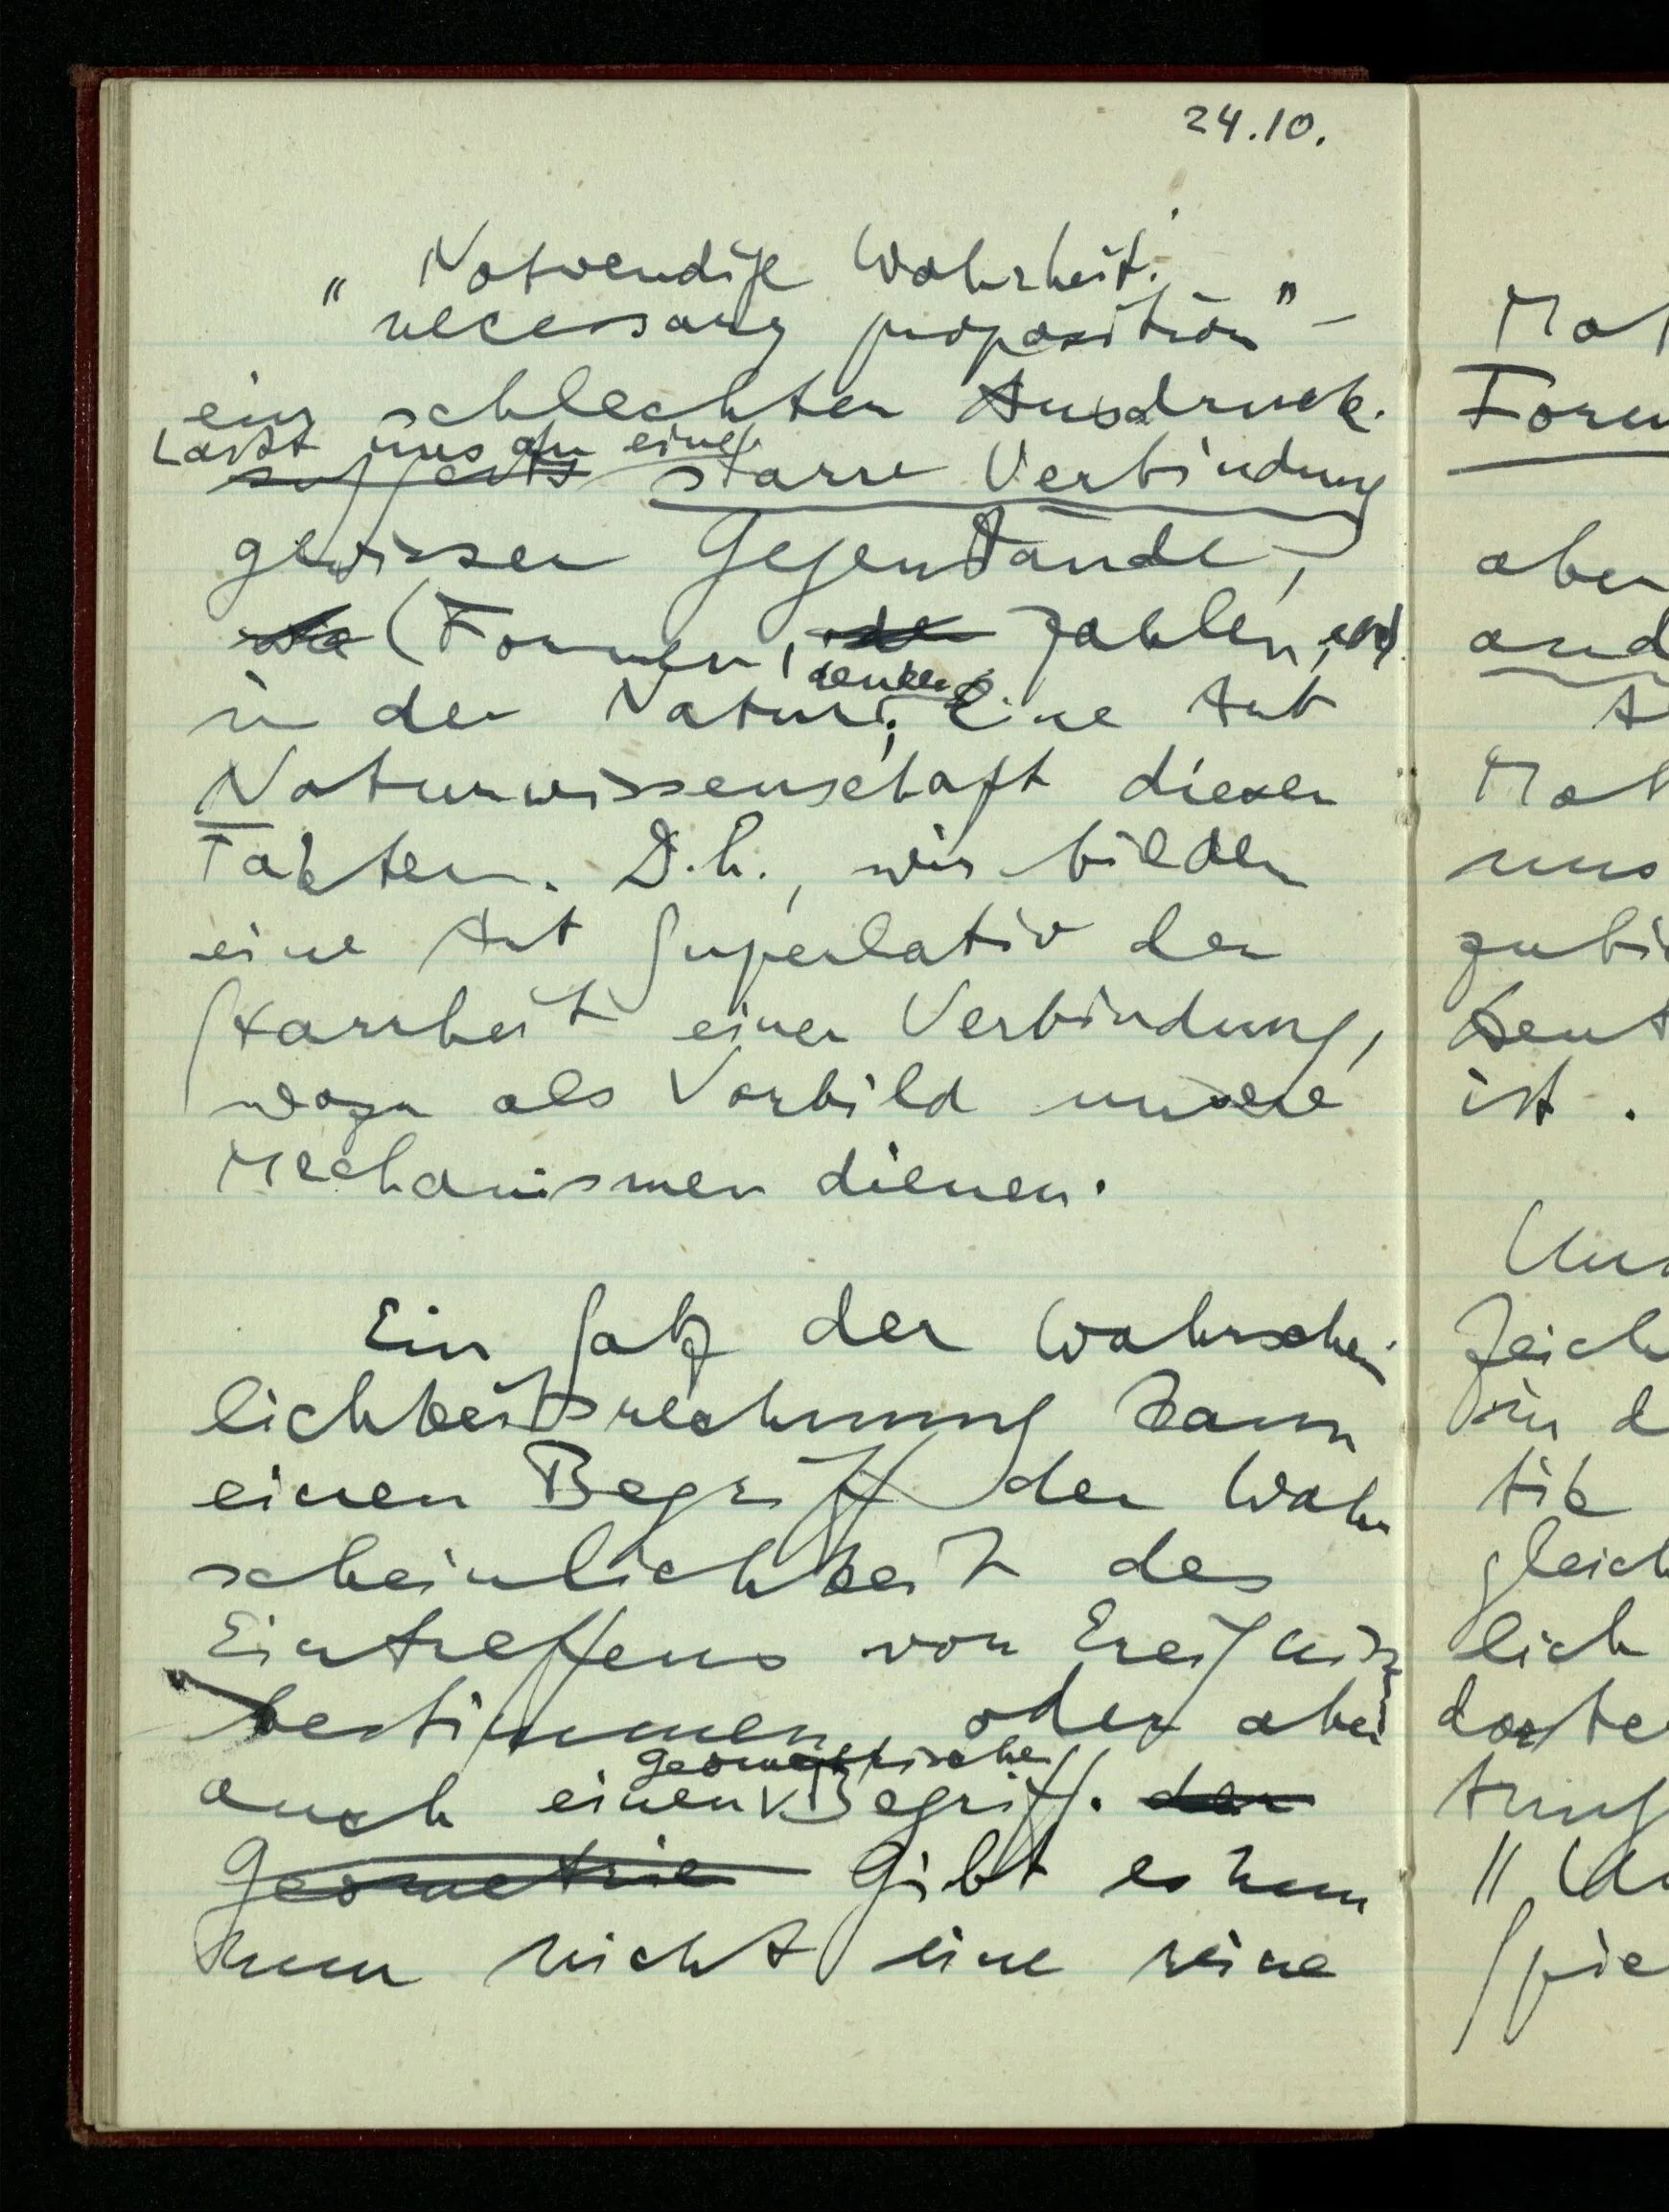 24.10.
„ Notwendige Wahrheit.
necessary proposition" –
ein schlechter Ausdruck.
Lässt uns an eine
suggests starre Verbindung
gewisser Gegenstände,
wie (Formen, oder Zahlen,
denken
in der Natur; Eine Art
Naturwissenschaft dieser
Fakten. D.h., wir bilden
eine Art Superlativ der
Starrheit einer Verbindung,
wozu als Vorbild unsere
Mechanismen dienen.
Ein Satz der Wahrschein
lichkeitsrechnung kann
einen Begriff der Wahr
scheinlichkeit des
Eintreffens von Ereigniss
bestimmen, oder aber
geometrischen
auch einen Begriff. der
Geometrie Gibt es nun
nun nicht eine reine
Mat
Form
aber
and
A
Mat
uns
zubi
deut
ist .
Zeich
in d
tik
gleich
lich
Spie